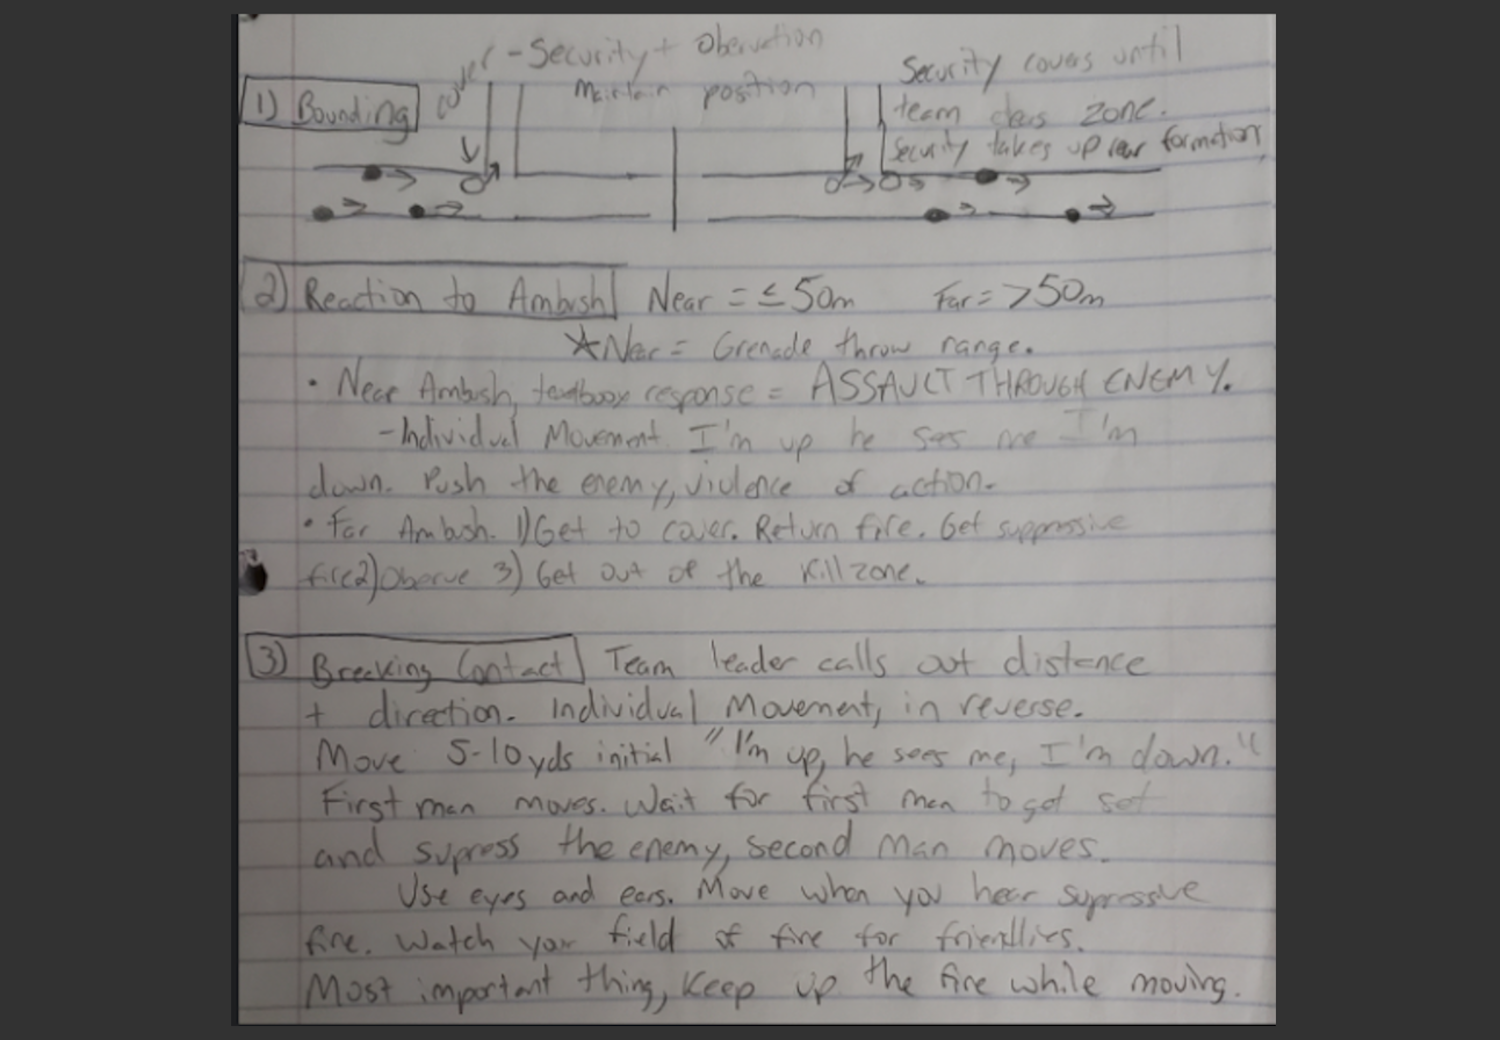 cover - Security + Obervation
Maintain position
Security covers until
team clers zone.
Security takes up rear formation
1) Bounding
2) Reaction to Ambush Near = ≤50m Far = >50m
*Near = Grenade throw range.
• Near Ambush, textboox response = ASSAULT THROUGH ENEMY.
- Individual Movement. I'm up he sees me I'm
down. Push the enemy, violence of action.
• Far Ambush. 1) Get to cover. Return fire. Get suppressive
fire 2) Oberve 3) Get out of the Kill zone.
3) Breaking Contact Team leader calls out distance
+ direction. Individual Movement, in reverse.
Move 5-10 yds initial "I'm up, he sees me, I'm down."
First man moves. Wait for first man to get set
and supress the enemy, second man moves.
Use eyes and ears. Move when you hear supressive
fire. Watch your field of fire for friendlies.
Most important thing, Keep up the fire while moving.